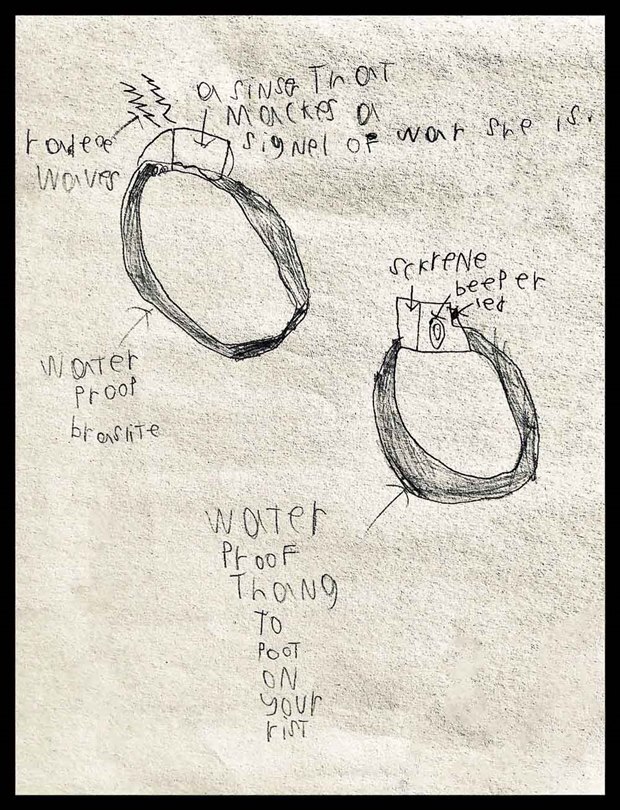 a sinser That
mackes a
signel of war she is.
radeoe
waves
water
proof
braslite
sckrene
beeper
led
water
proof
Thang
To
poot
on
your
rist